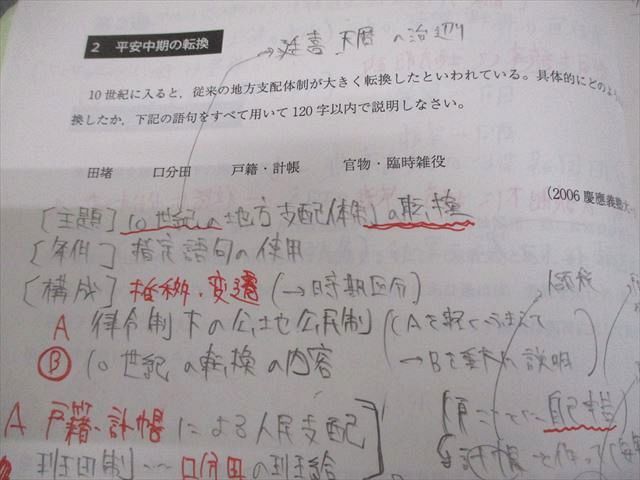 2 平安中期の転換
→延喜・天暦の治辺り
10世紀に入ると,従来の地方支配体制が大きく転換したといわれている。具体的にどのよ
換したか,下記の語句をすべて用いて120字以内で説明しなさい。
田堵 口分田 戸籍・計帳 官物・臨時雑役
(2006 慶應義塾大
[主題] 10世紀の地方支配体制の転換
[条件] 指定語句の使用
[構成] 推移・変遷 (→時期区分)
A 律令制下の公地公民制 (Aを軽くふまえて
Ⓑ 10世紀の転換の内容 →Bを重点に説明
A 戸籍・計帳による人民支配
班田制…口分田の班給
自己申告